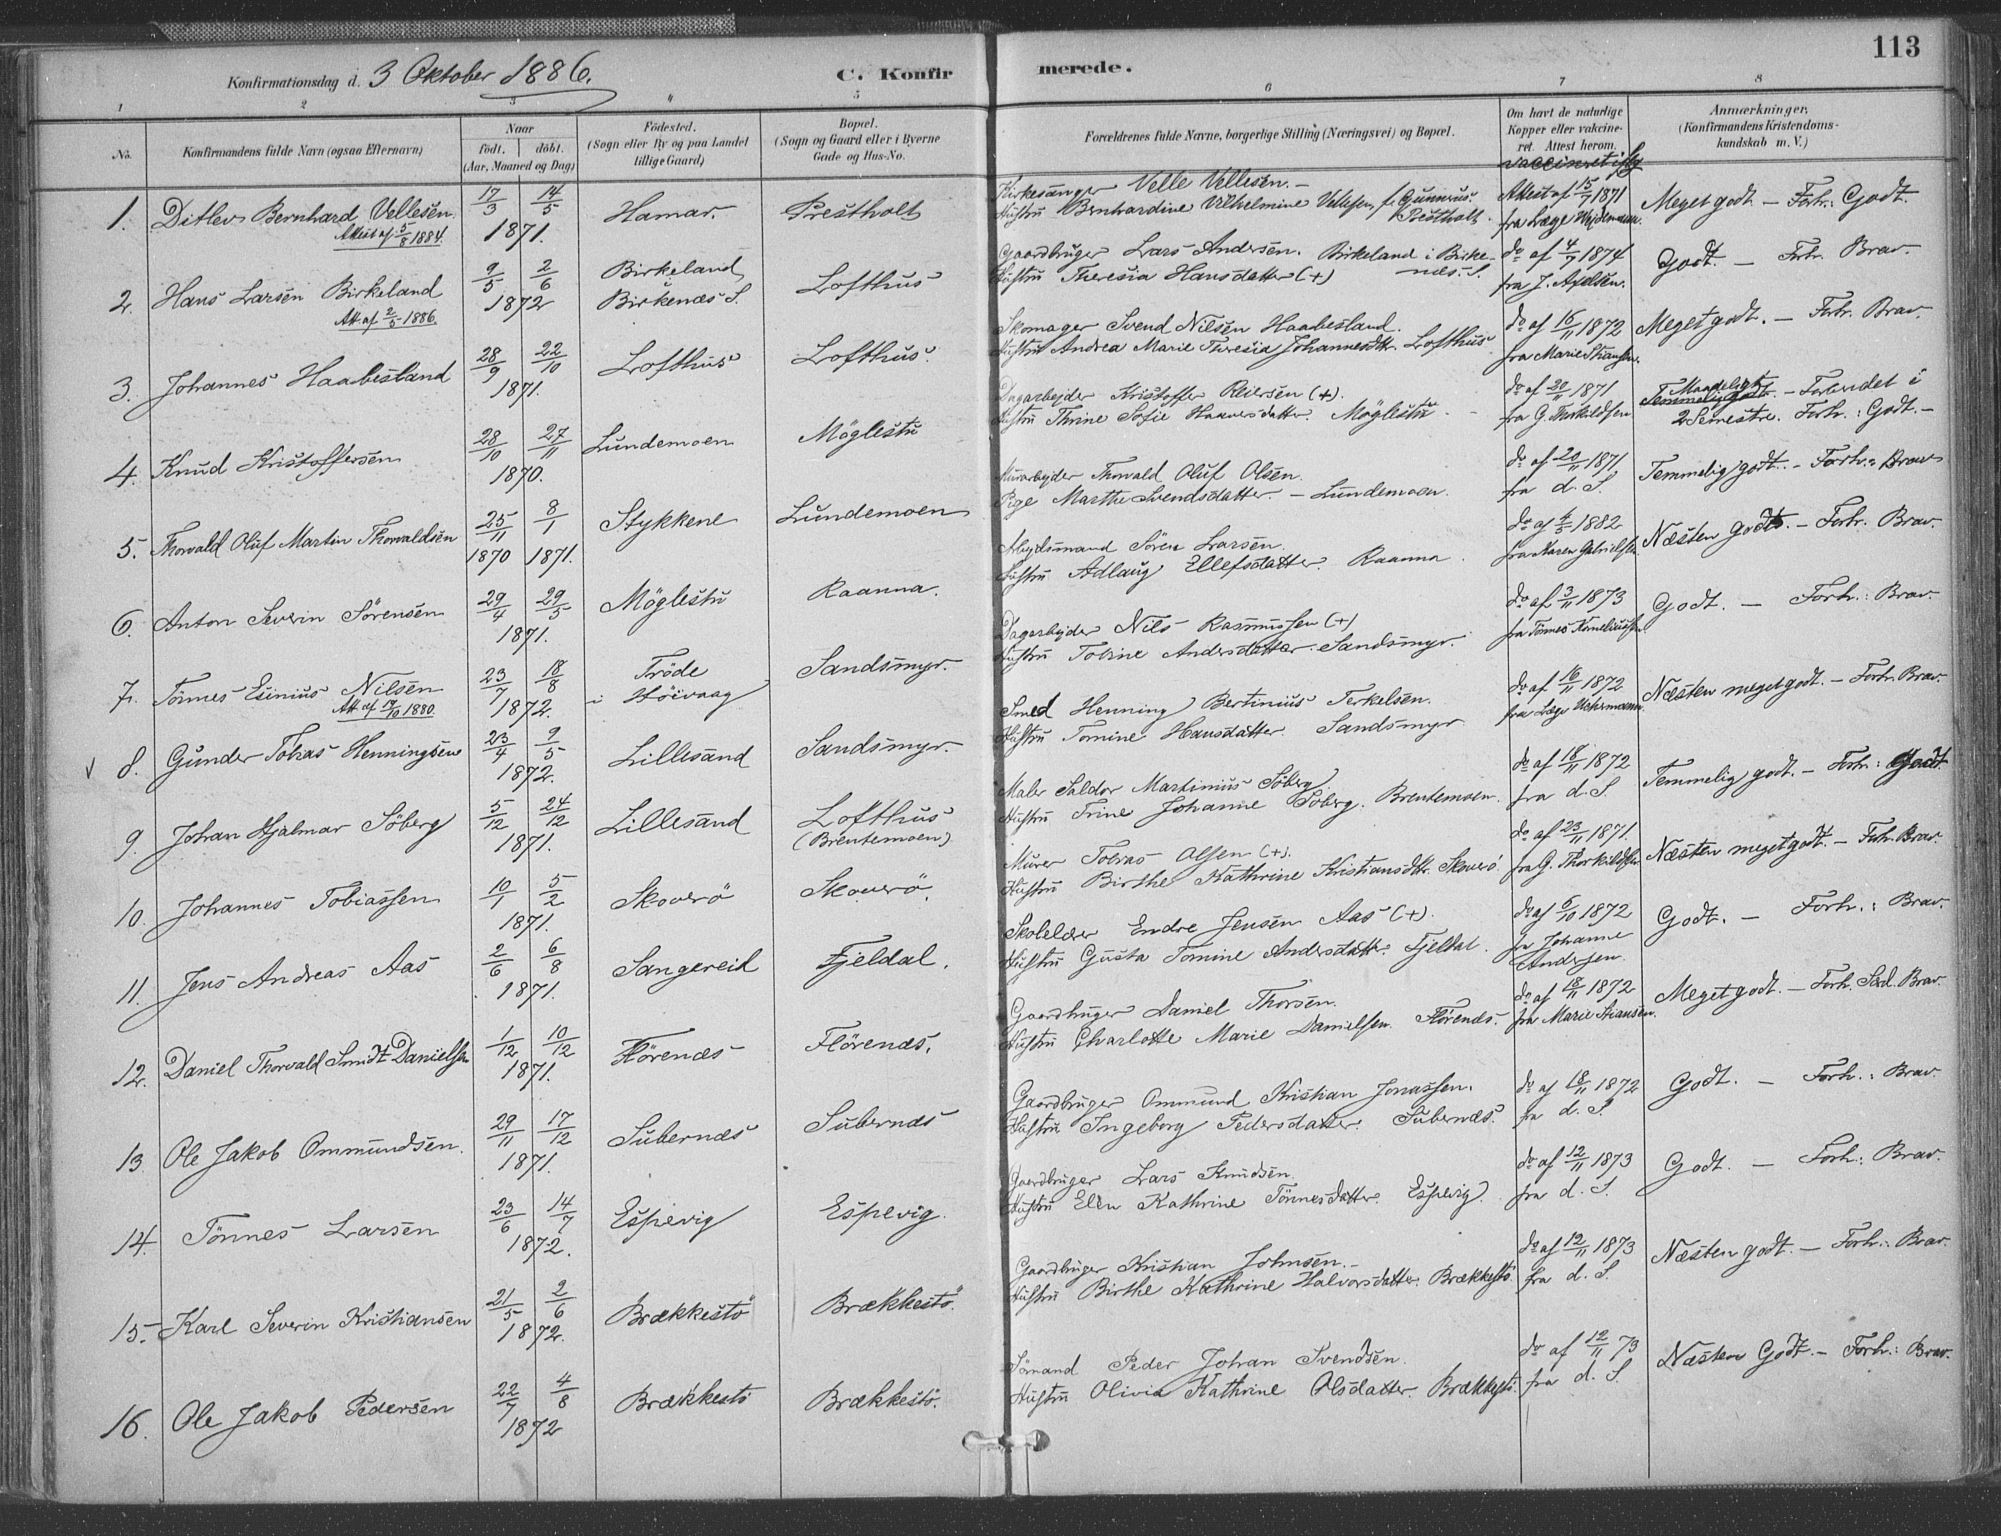 113
Konfirmationsdag d. 3 Oktober 1886. C. Konfirmerede.
1 2 3 4 5 6 7 8
No. Konfirmandens fulde Navn (ogsaa Efternavn) Naar født. døbt. (Aar, Maaned og Dag) Fødested. (Sogn eller By og paa Landet tillige Gaard) Bopæl. (Sogn og Gaard eller i Byerne Gade og Hus-No. Forældrenes fulde Navne, borgerlige Stilling (Næringsvei) og Bopæl. Om havt de naturlige Kopper eller vakcineret. Attest herom. Anmærkninger. (Konfirmandens Kristendomskundskab m. V.)
1. Ditlev Bernhard Vellesen. 17/3 14/5 Hamar. Prestholt Kirkesanger Velle Vellesen. – Attest af 15/7 1871 Meget godt – Forh.: Godt.
Attest af 5/8 1884. 1871. Hustru Bernhardine Vilhelmine Vellesen, f. Gunnerus. Prestholt. fra Læge
2. Hans Larsen Birkeland 9/5 2/6 Birkeland i Birkenæs S. Lofthus Gaardbruger Lars Andersen. Birkeland i Birkenæs S. do af 4/7 1874 Godt. – Forh. Brav.
Att. af 2/5 1886. 1872 Hustru Theresia Hansdatter (+) fra J. Axelsen.
3. Johannes Haabesland 28/9 22/10 Lofthus Lofthus. Skomager Svend Nilsen Haabesland. do af 16/11 1872 Meget godt. – Forh. Brav.
1871. Hustru Andrea Marie Theresia Johannesdtr. Lofthus fra Marie Stiansen
4. Knud Kristoffersen 28/10 27/11 Lundemoen Møglestu Dagarbejder Kristoffer Reiersen (+). do af 20/11 1871 Temmelig godt Maadeligt – Forberedet i
1870. Hustru Thrine Sofie Haaversdatter. Møglestu fra G. Thorkildsen 2 Semestre. Forh.: Godt. –
5. Thorvald Oluf Martin Thorvaldsen 25/11 8/1 Stykkene Lundemoen Murarbejder Thorvald Oluf Olsen. do af 20/11 1871 Temmelig godt. – Forh.: Brav
1870 1871. Pige Marthe Svendsdatter. – Lundemoen. fra d. S.
6. Anton Severin Sörensen 29/4 29/5 Møglestu Raanna. Arbejdsmand Sören Larsen. 1882 Næsten godt. – Forh. Brav.
1871. Hustru Adlaug Ellefsdatter. Raanna. fra Maren Gabrielsen
7. Tönnes Esinius Nilsen 23/7 18/8 Tröde i Höivaag Sandsmyr. Dagarbejder Nils Rasmussen (+) do af 3/11 1873 Godt. – Forh.: Brav.
Att. af 17/10 1880. 1872. Hustru Tobine Andersdatter. Sandsmyr. fra Tönnes Korneliussen
8. Gunder Tobias Henningsen 23/4 9/5 Lillesand Sandsmyr. Smed Henning Bertinius Terkelsen. do af 16/11 1872 Næsten meget godt. – Forh. Brav.
1872. Hustru Tomine Hansdatter Sandsmyr fra Læge Uchermann
9. Johan Hjalmar Söberg 5/12 24/12 Lillesand Lofthus (Brentemoen) Maler Saldor Martinius Söberg do af 18/11 1872 Temmelig godt. – Forh.: Godt
1871. Hustru Trine Johanne Söberg. Brentemoen. fra d. S
10. Johannes Tobiassen 10/1 5/2 Skoverö Skoverö. Murer Tobias Olsen (+). do af 23/11 1871. Næsten meget godt. – Forh. Brav.
1871. Hustru Birthe Kathrine Kristiansdtr. Skoverö. fra G. Thorkildsen
11. Jens Andreas Aas 2/6 6/8 Sangereid Fjeldal. Skolelærer Endre Jensen Aas (+). do af 6/10 1872 Godt. – Forh.: Brav.
1871. Hustru Gusta Tomine Andersdatter. Fjeldal. fr. Johanne Andersen.
12. Daniel Thorvald Smidt Danielsen 1/12 10/12 Flörenæs Flörenæs. Gaardbruger Daniel Thorsen. do af 18/11 1872 Meget godt. – Forh. Særd. Brav.
1871. Hustru Charlotte Marie Danielsen. Flörenæs. fra Marie Stiansen.
13. Ole Jakob Ommundsen. 29/11 17/12 Subernæs Subernæs Gaardbruger Ommund Kristian Jonassen. do af 18/11 1872 Godt. – Forh.: Brav.
1871. Hustru Ingeborg Pedersdatter. Subernæs. fra d. S.
14. Tönnes Larsen 23/6 14/7 Espevig Espevig. Gaardbruger Lars Knudsen. do af 12/11 1873 Godt. – Forh.: Brav.
1872. Hustru Elen Kathrine Tönnesdatter. Espevig. fra d. S.
15. Karl Severin Kristiansen 21/5 2/6 Brækkestö Brækkestö. Gaardbruger Kristian Johnsen. – do af 12/11 1873 Næsten godt. – Forh.: Brav.
1872. Hustru Birthe Kathrine Halvorsdatter. Brækkestö. fra d. S.
16. Ole Jakob Pedersen 22/7 4/8 Brækkestö Brækkestö. Sömand Peder Johan Svendsen. do af 12/11 73 Næsten Godt. – Forh.: Brav.
1872 Hustru Olivia Kathrine Olsdatter. Brækkestö. fra d. S